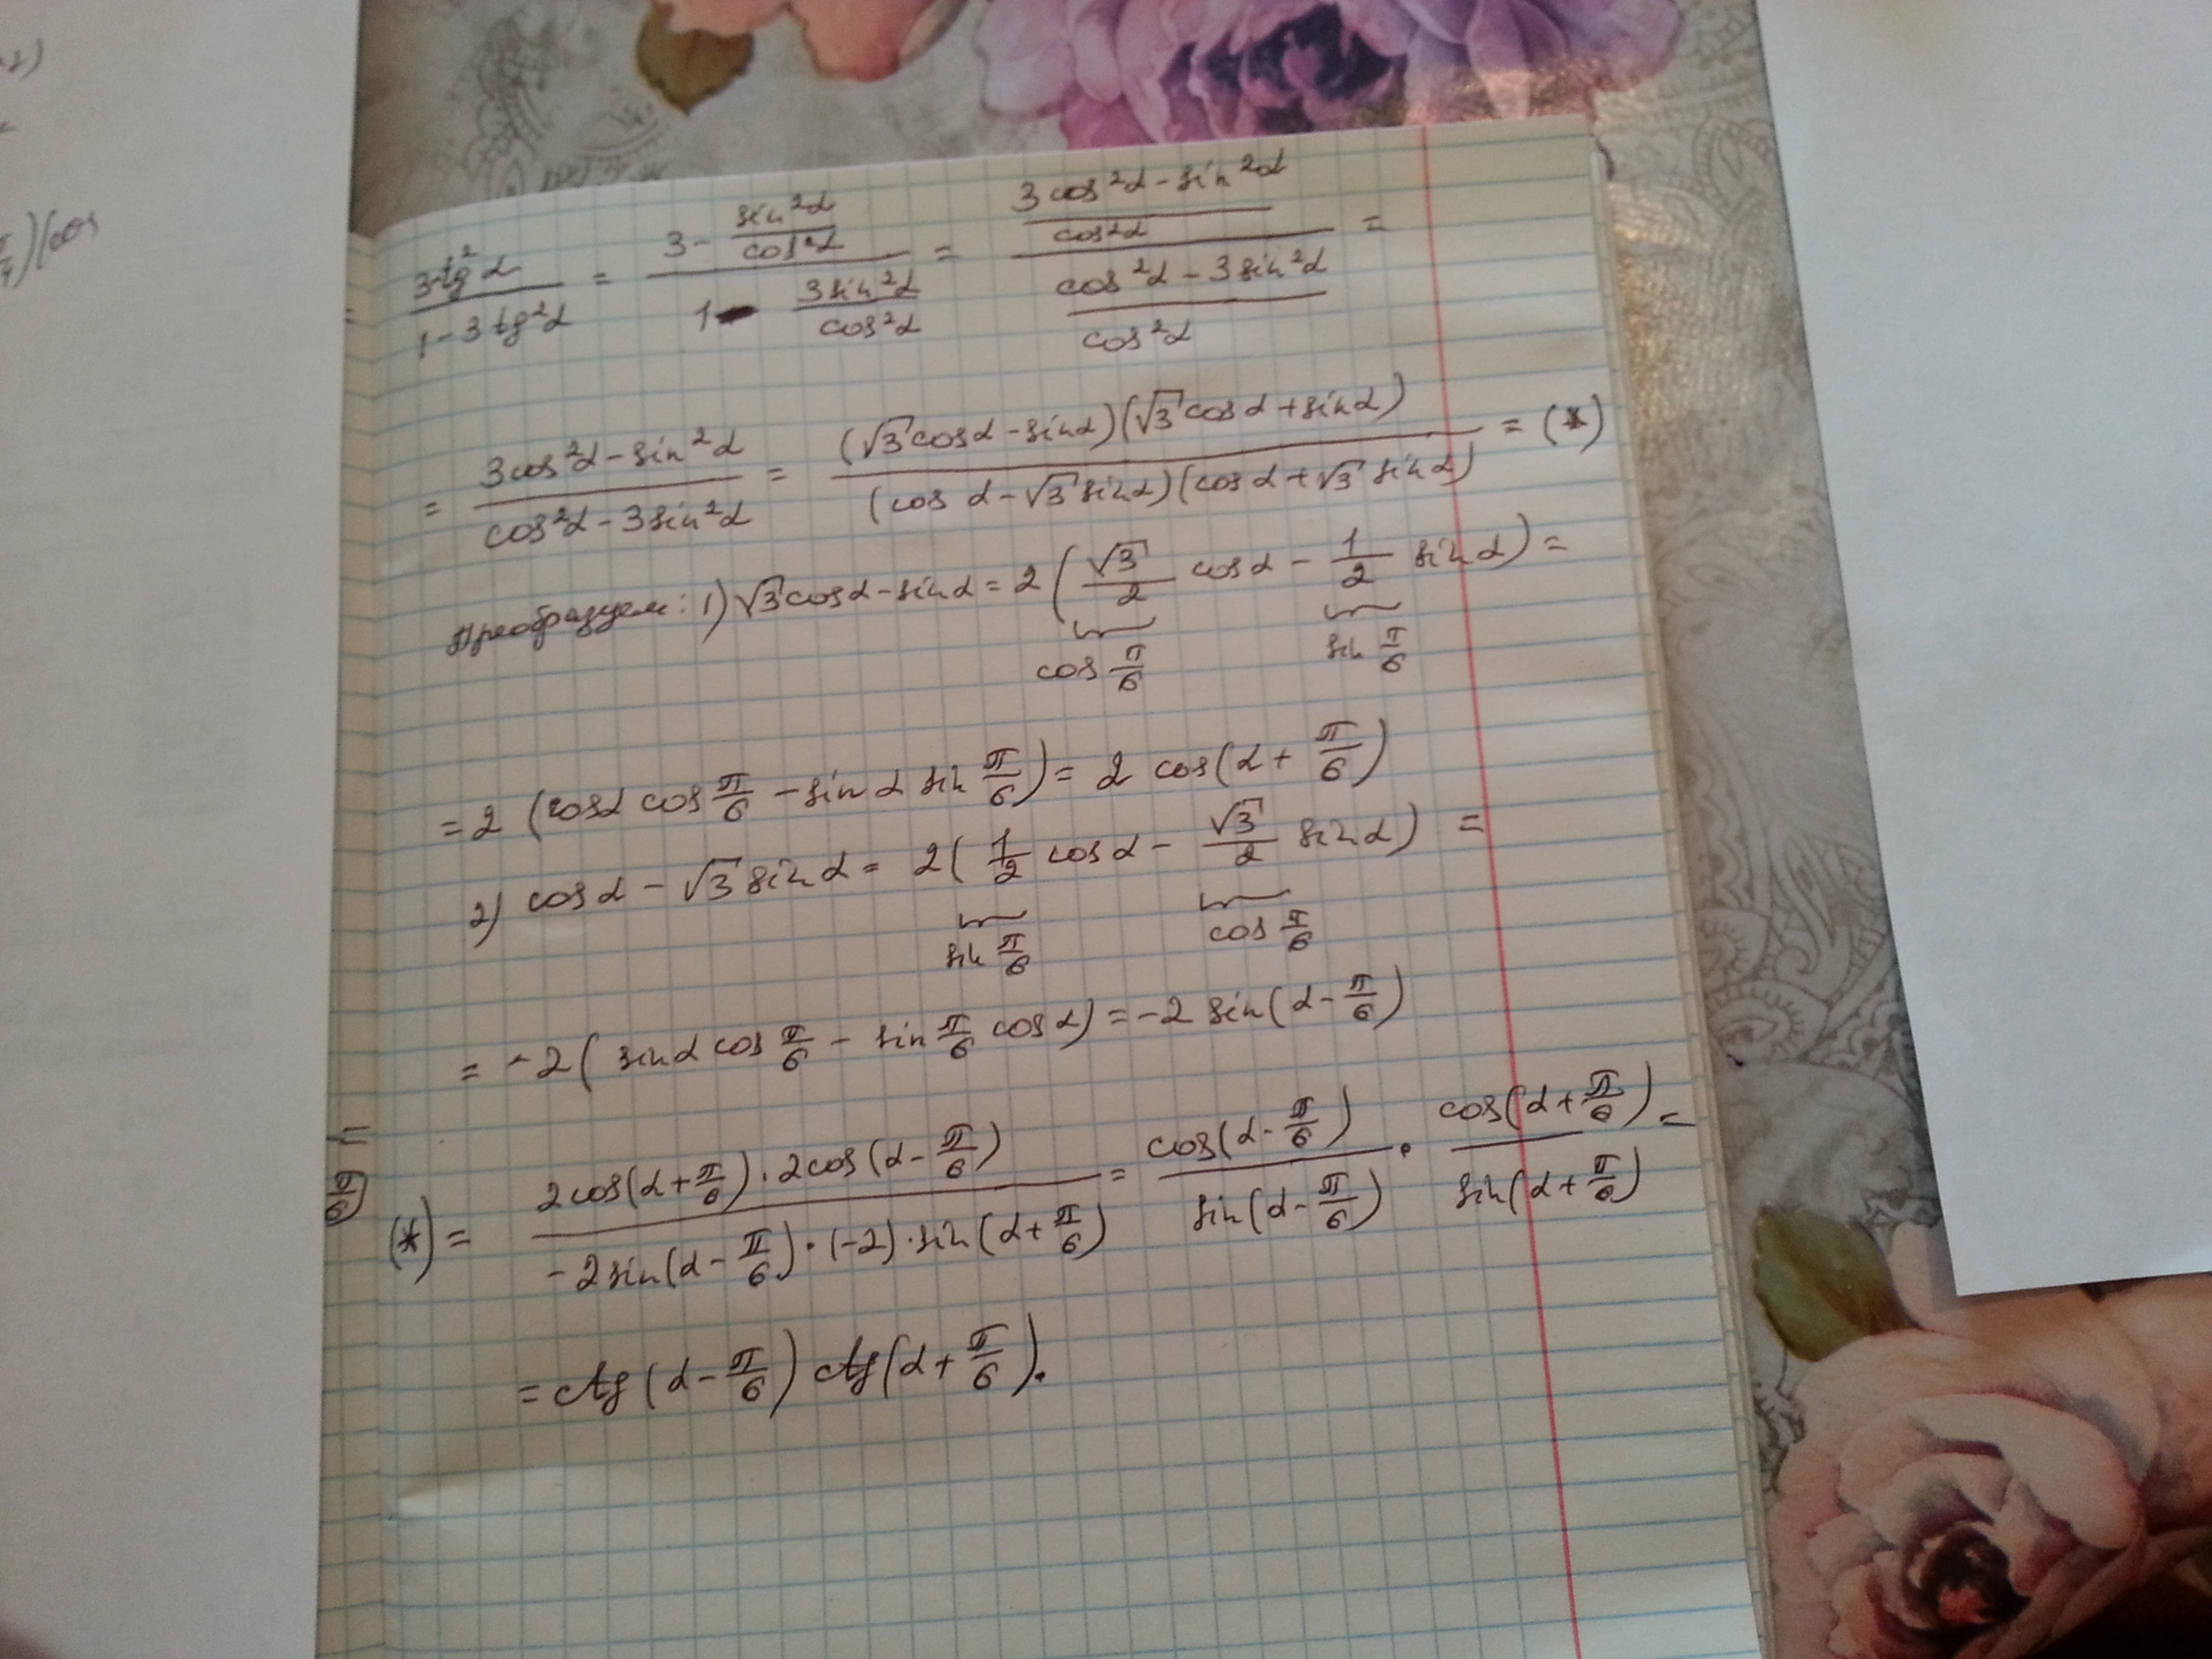 2)
π/4)(cos
= (3-tg²α)/(1-3tg²α) = (3 - sin²α/cos²α)/(1 - 3sin²α/cos²α) = ((3cos²α - sin²α)/cos²α)/((cos²α - 3sin²α)/cos²α) =
= (3cos²α - sin²α)/(cos²α - 3sin²α) = ((√3cosα - sinα)(√3cosα + sinα))/((cosα - √3sinα)(cosα + √3sinα)) = (*)
Преобразуем: 1) √3cosα - sinα = 2(√3/2 cosα - 1/2 sinα) =
cos π/6 sin π/6
= 2(cosα cos π/6 - sinα sin π/6) = 2 cos(α + π/6)
2) cosα - √3sinα = 2(1/2 cosα - √3/2 sinα) =
sin π/6 cos π/6
= -2(sinα cos π/6 - sin π/6 cosα) = -2 sin(α - π/6)
(*) = (2cos(α + π/6) · 2cos(α - π/6))/(-2sin(α - π/6) · (-2) · sin(α + π/6)) = cos(α - π/6)/sin(α - π/6) · cos(α + π/6)/sin(α + π/6) =
= ctg(α - π/6) ctg(α + π/6).